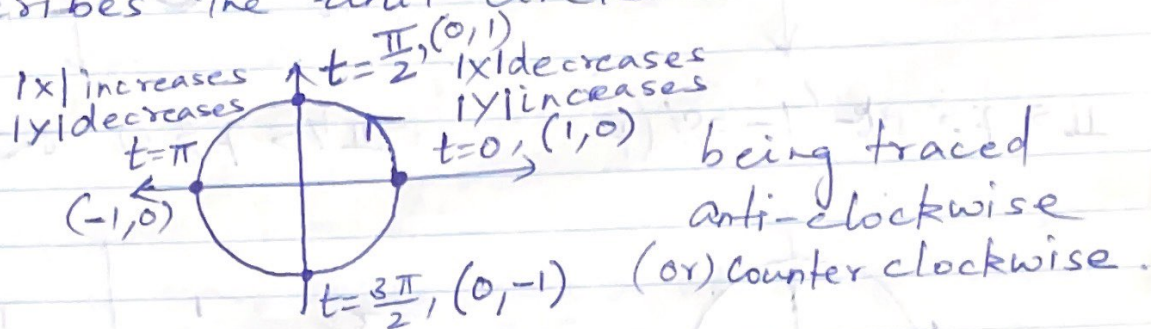 the
t=π/2, (0,1)
|x| increases
|y| decreases
|x| decreases
|y| inceases
t=π
t=0, (1,0)
(-1,0)
t=3π/2, (0,-1)
being traced
anti-clockwise
(or) Counter clockwise.